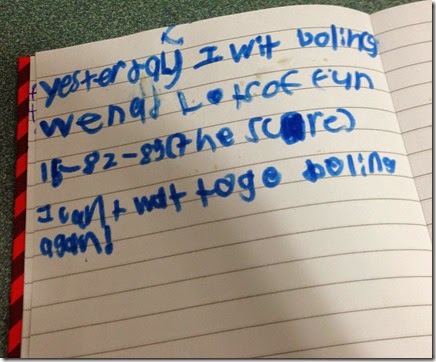 yesterday I wit boling
we had Lotsof fun
15-82-89(the score)
I can't wait togo boling
again!